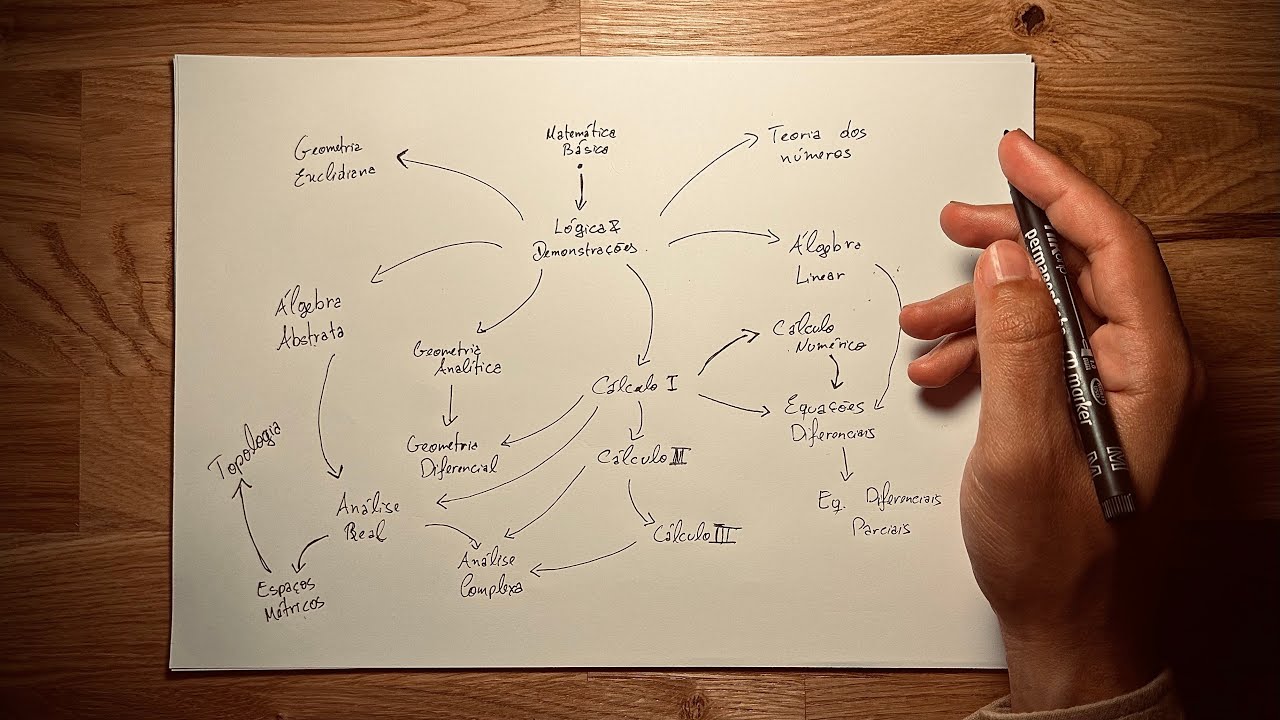 Matemática
Básica
Geometria
Euclidiana
Teoria dos
números
Lógica &
Demonstrações.
Álgebra
Linear
Álgebra
Abstrata
Geometria
Analítica
Cálculo
Numérico
Cálculo I
Equações
Diferenciais
Geometria
Diferencial
Cálculo II
Topologia
Análise
Real
Eq. Diferenciais
Parciais
Cálculo III
Análise
Complexa
Espaços
Métricos
permanent
marker
M